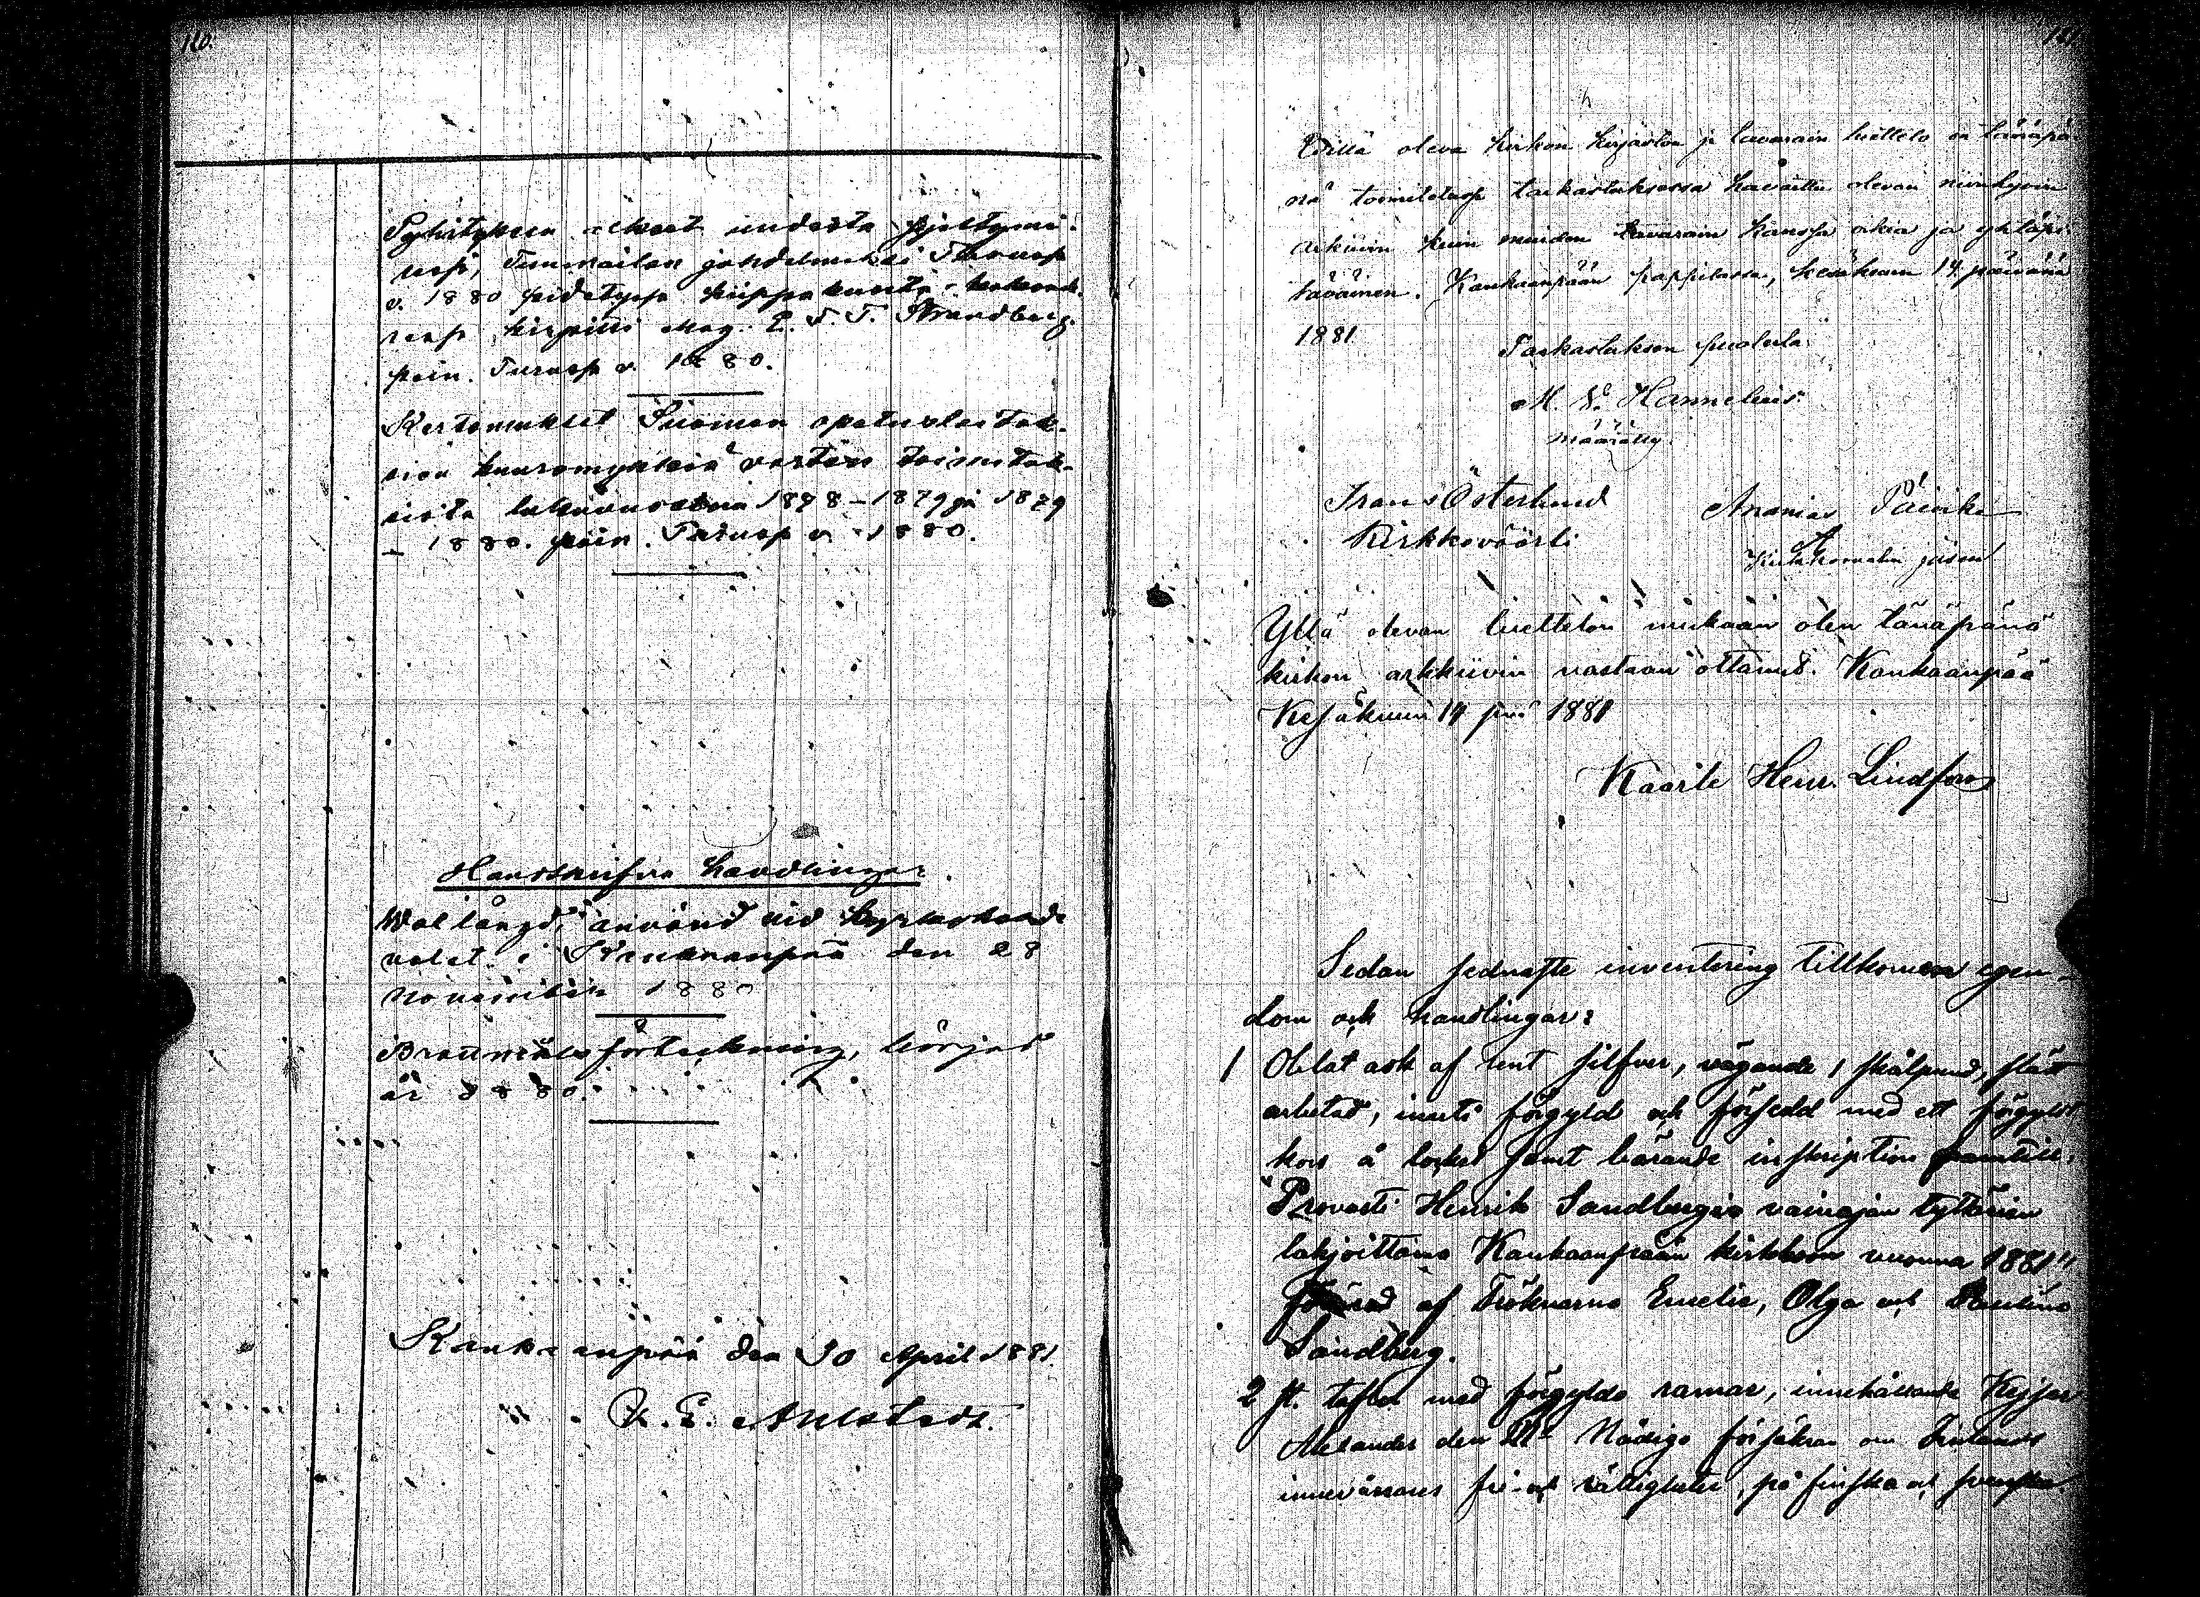 120.
Pyhityksen alkeet uudesta syntymi-
sestä,
v. 1880 pidetyssä hiippakunta-kokouk-
sessa, kirjoitti Mag. E. F. T. Strandberg.
pain. Turussa v. 1880.
Kertomukset Suomen opetuslaitok-
sien kuuromykkiä varten toimituk-
sista lukuvuosina 1878-1879 ja 1879
- 1880. pain. Turussa v. 1880.
Handskrifna handlingar.
Wallängd, använd vid kyrkoherde
valet i Kankaanpää den 28
November 1880
Brottmåls förteckning, börjad
år 1880.
Kankaanpää den 30 April 1881.
K. E. Ahlstedt.
121
Edellä oleva kirkon kirjaston ja tavarain luettelo on tänäpä
nä toimitetussa tarkastuksessa havaittu olevan niinhyvin
arkiivin kuin muiden tavarain kanssa oikia ja yhtäpi-
täväinen. Kankaanpään pappilassa, kesäkuun 14 päivänä
1881
Tarkastuksen puolesta
M. V. Hannelius
määrätty.
Frans Österlund Ananias Päivike
Kirkkoväärti Kirkkoraadin jäsen
Yllä olevan luettelon mukaan olen tänäpänä
kirkon arkkiivin vastaan ottanut. Kankaanpää
Kesäkuun 14 pnä 1881
Kaarle Henr. Lindfors
Sedan sednaste inventering tillkommen egen-
dom och handlingar:
1 Oblat ask af rent silfver, vägande 1 skålpund, slät
arbetad, inuti förgyld och försedd med ett förgyldt
kors å locket samt bärande inskription
"Provasti Henrik Sandbergin vainajan tyttärien
lahjoittama Kankaanpään kirkkoon vuonna 1881"
af Fröknarna Emelie, Olga och Paulina
Sandberg.
2 st. taflor med förgylda ramar, innehållande Kejsar
Alexander den III Nådiga försäkran om Finlands
innevånares fri- och rättigheter, på finska och svenska.